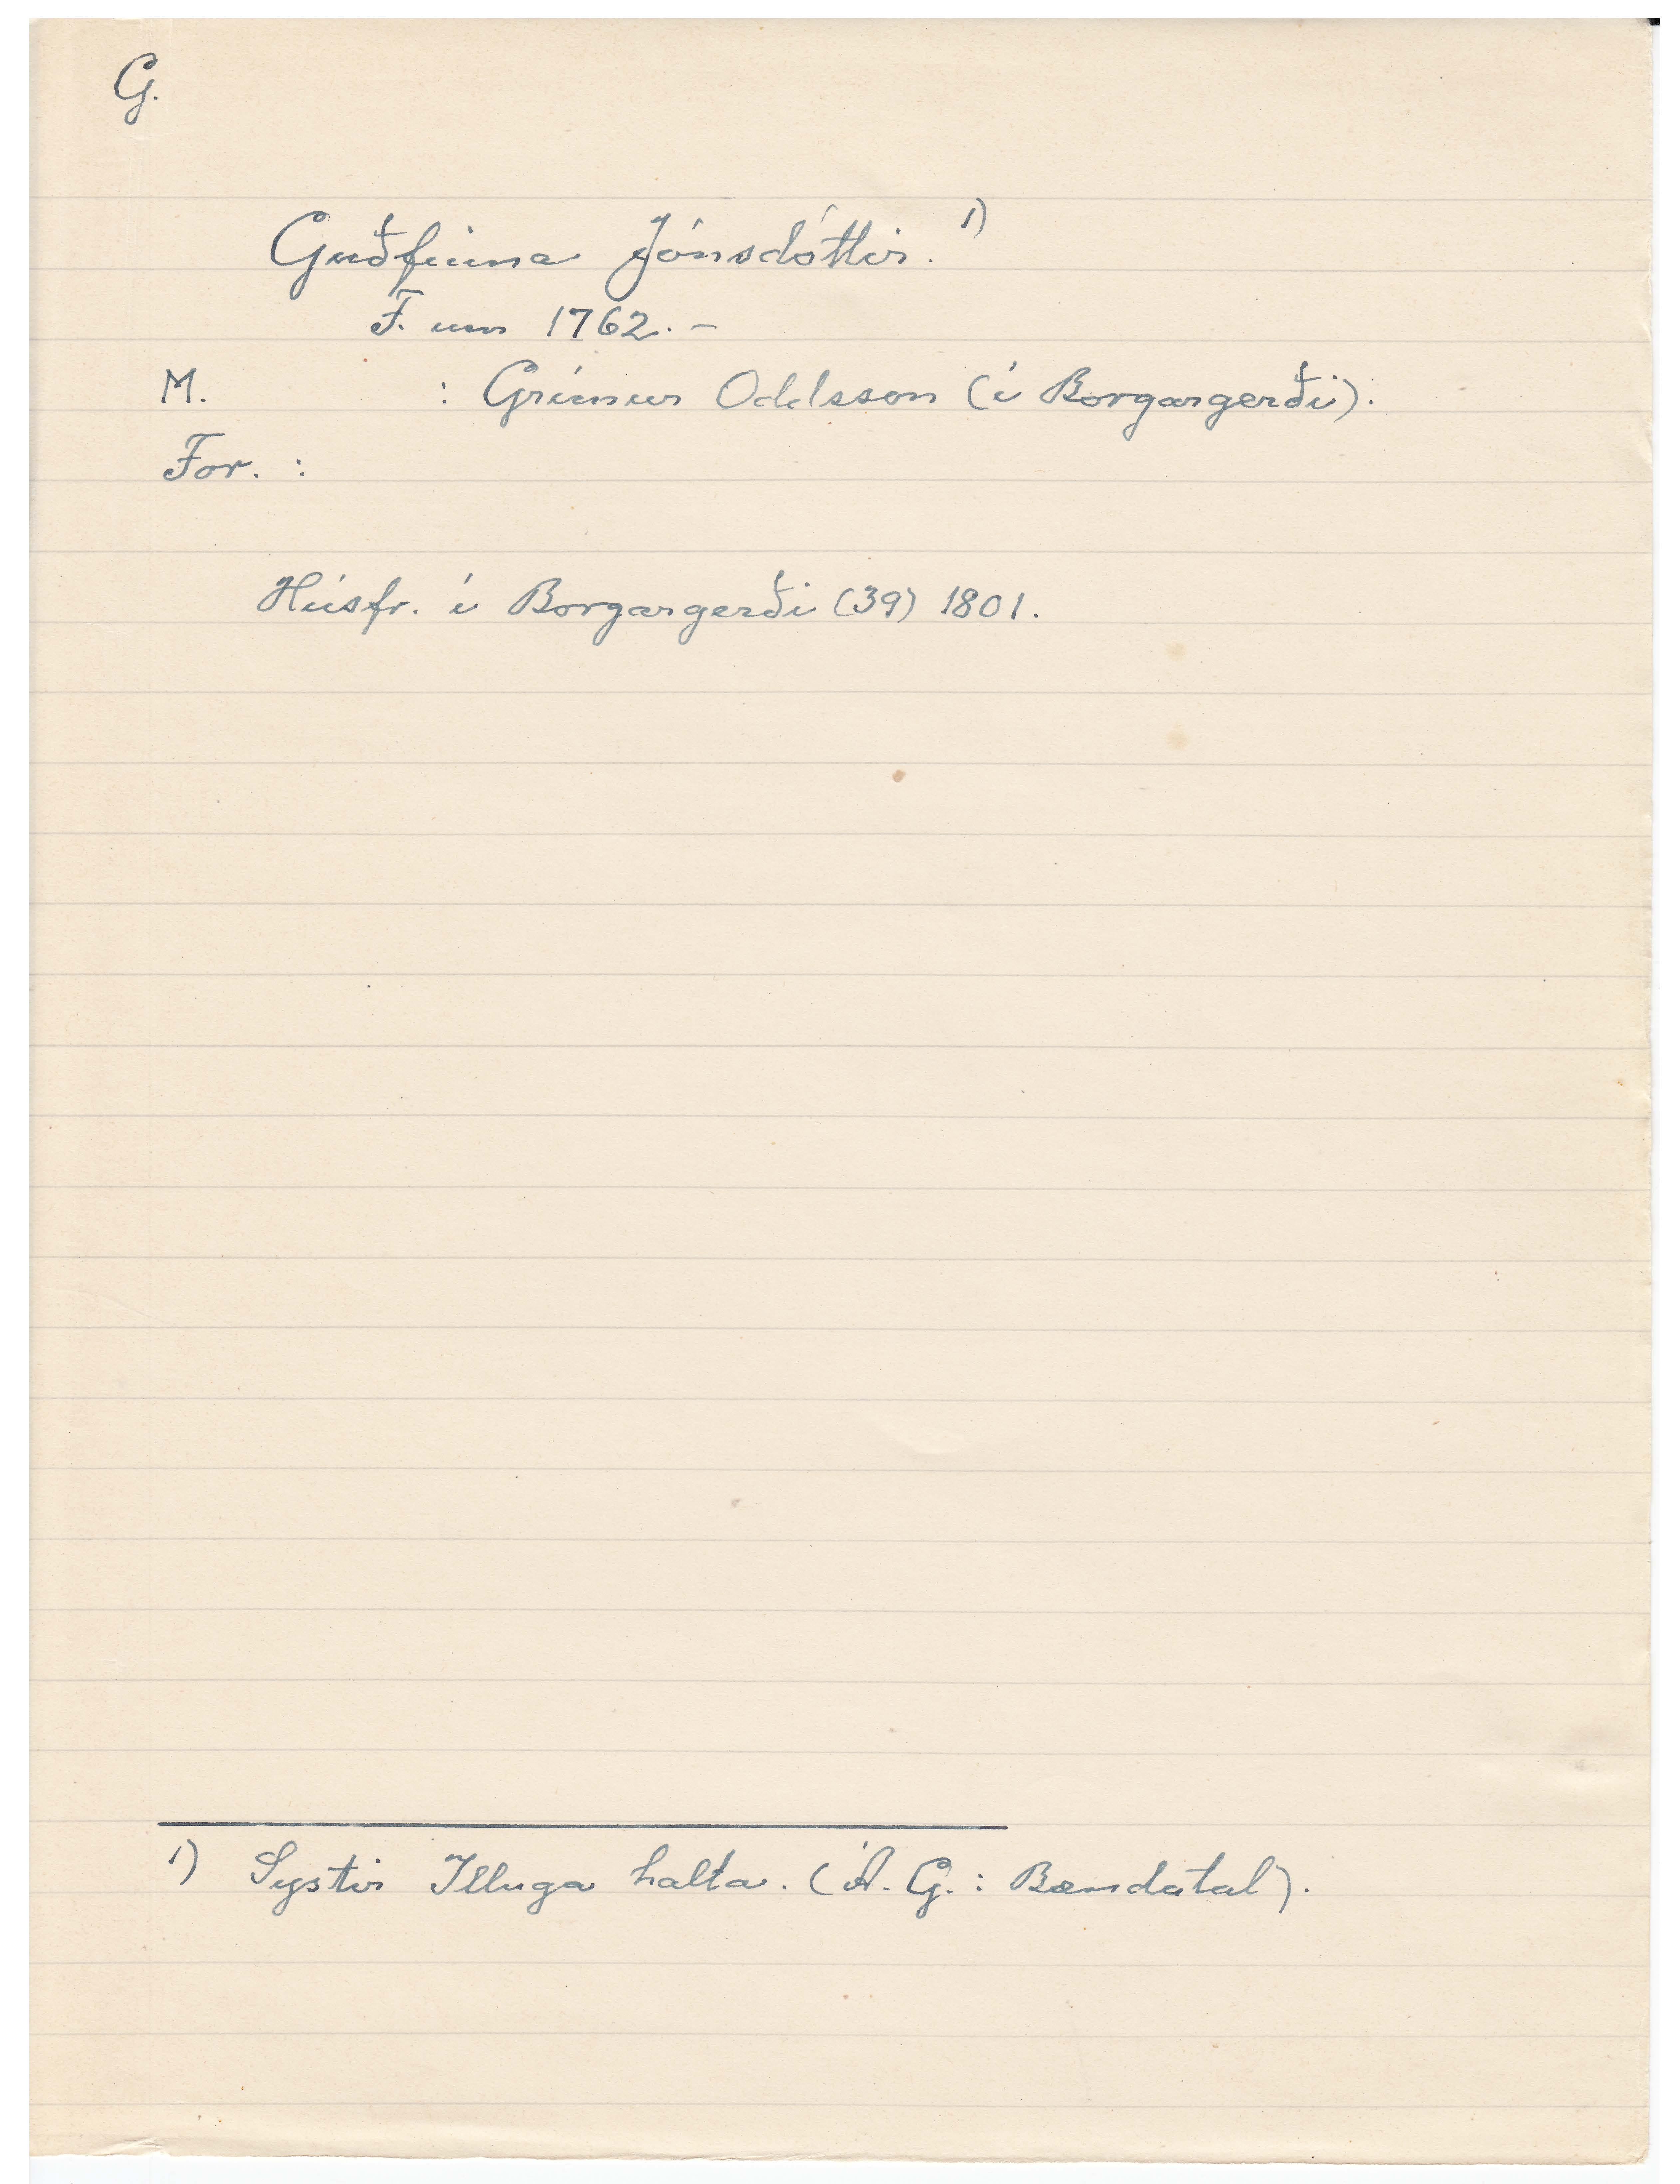 G.
Guðfinna Jónsdóttir. 1)
F. um 1762. –
M. : Grímur Oddsson (í Borgargerði).
For. :
Húsfr. í Borgargerði (39) 1801.
1) Systir Illuga halta. (Á. G. : Bændatal).